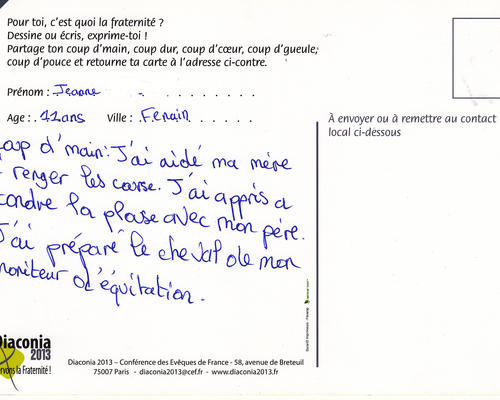 Pour toi, c'est quoi la fraternité ?
Dessine ou écris, exprime-toi !
Partage ton coup d'main, coup dur, coup d'cœur, coup d'gueule,
coup d'pouce et retourne ta carte à l'adresse ci-contre.
Prénom : Jeanne
Age : 11ans Ville : Fenain
À envoyer ou à remettre au contact
local ci-dessous
oup d'main: J'ai aidé ma mère
renger les course. J'ai appris a
tondre la plouse avec mon père.
J'ai préparé le cheval de mon
moniteur d'équitation.
Diaconia
2013
ervons la Fraternité !
Diaconia 2013 – Conférence des Evêques de France - 58, avenue de Breteuil
75007 Paris - diaconia2013@cef.fr - www.diaconia2013.fr